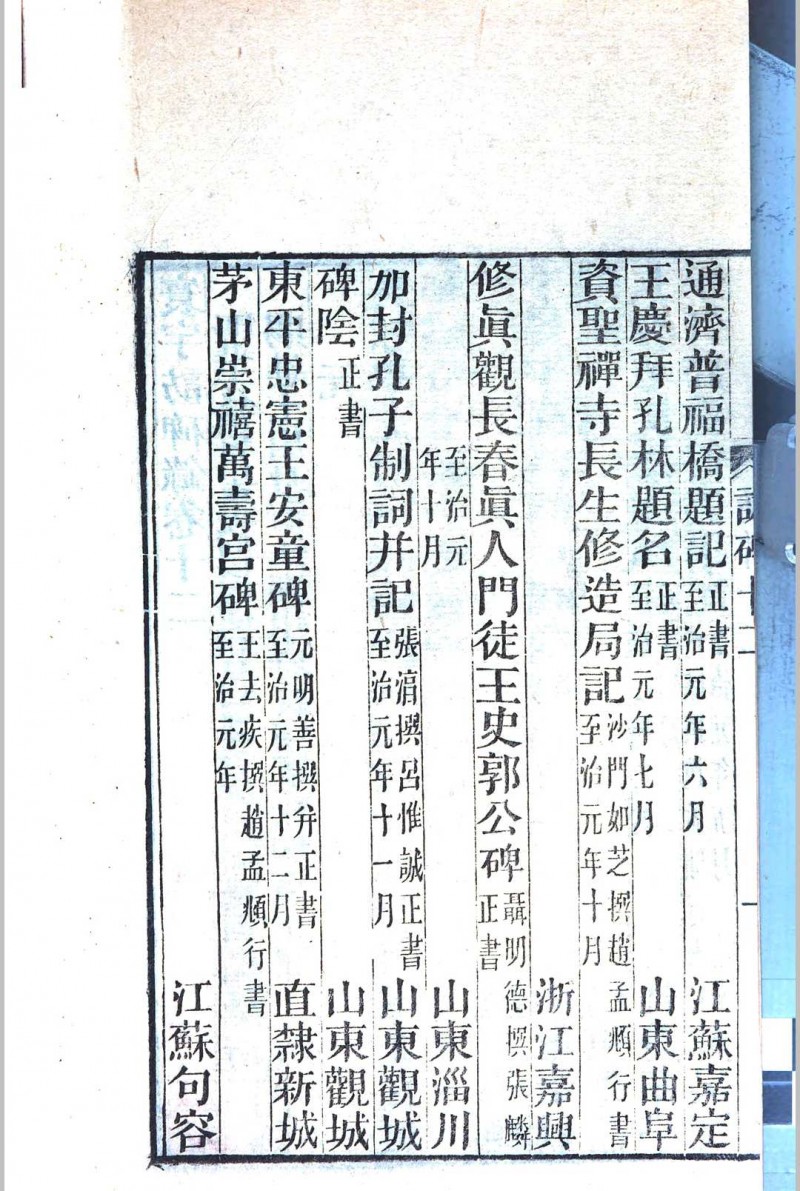 訪碑十二
一
通濟普福橋題記正書至治元年六月 江蘇嘉定
王慶拜孔林題名正書至治元年七月 山東曲阜
資聖禪寺長生修造局記沙門如芝撰趙孟頫行書至治元年十月
浙江嘉興
修眞觀長春眞人門徒王史郭公碑聶明德撰張麟正書
至治元年十月 山東淄川
加封孔子制詞并記張淯撰呂惟誠正書至治元年十一月 山東觀城
碑陰正書 山東觀城
東平忠憲王安童碑元明善撰并正書至治元年十二月 直隸新城
茅山崇禧萬壽宮碑王去疾撰趙孟頫行書至治元年
江蘇句容